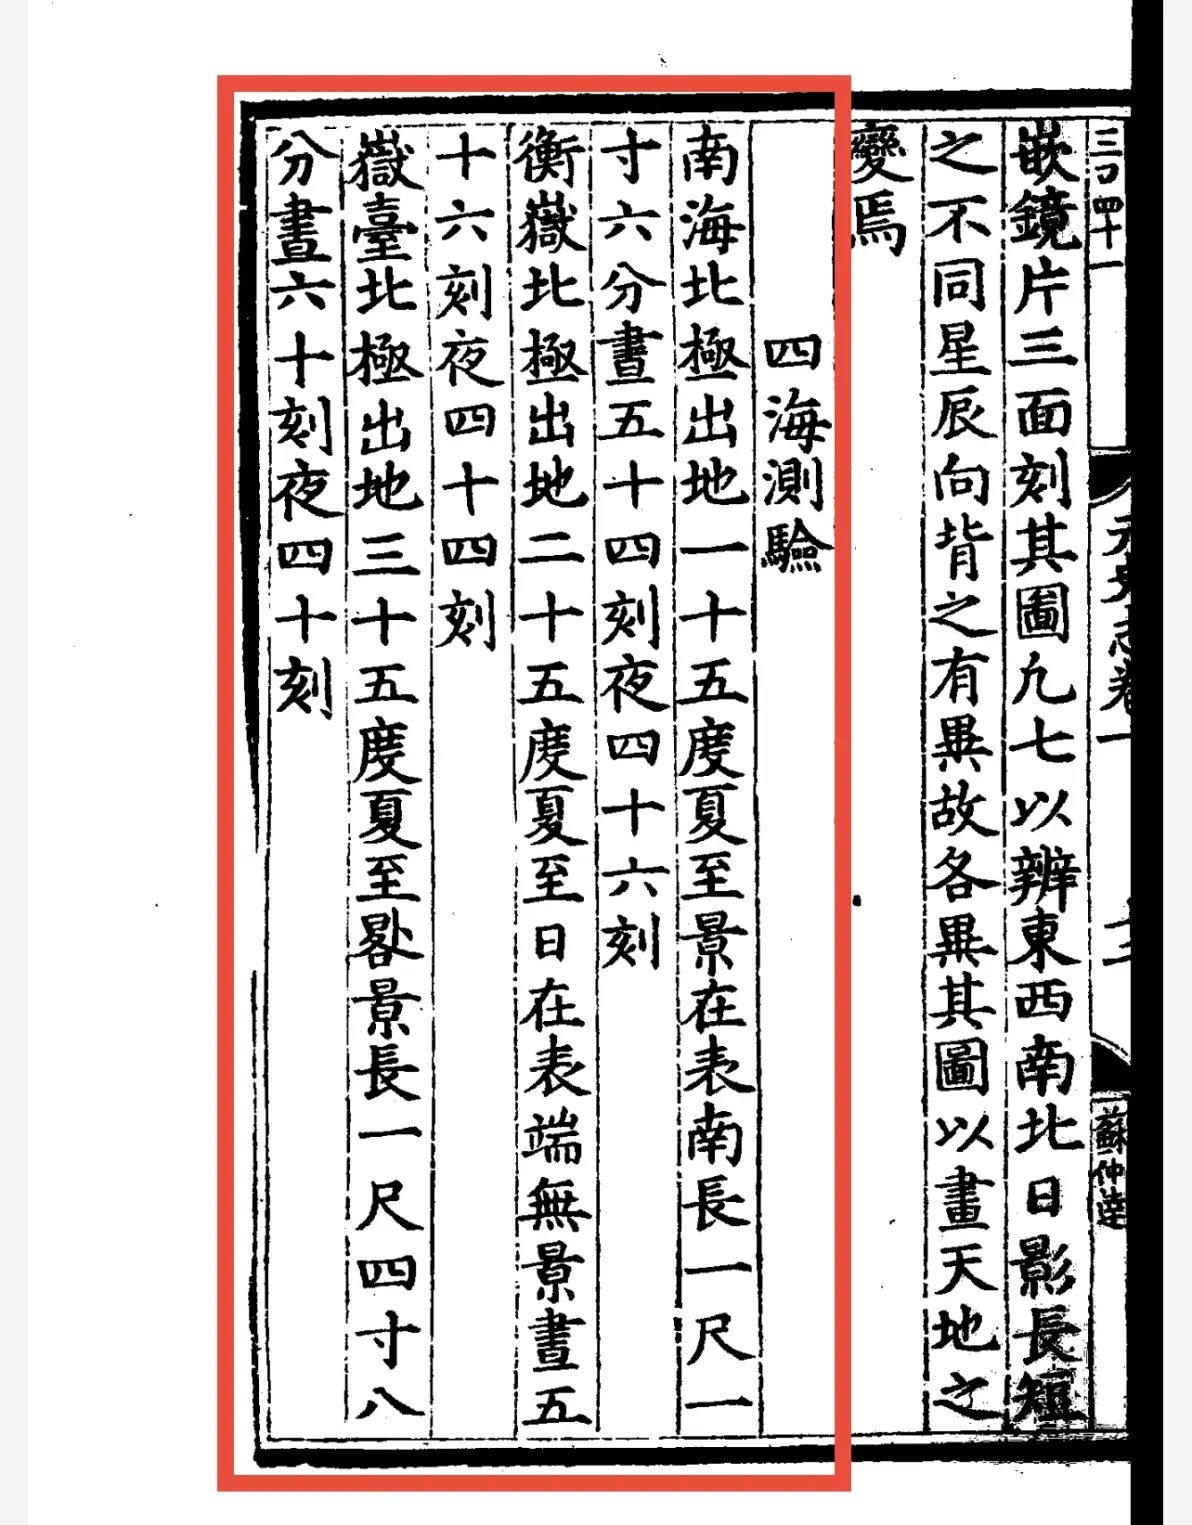 元史志卷一
蘇仲達
嵌鏡片三面刻其圖凢七以辨東西南北日影長短
之不同星辰向背之有異故各異其圖以畫天地之
變焉
四海測驗
南海北極出地一十五度夏至景在表南長一尺一
寸六分晝五十四刻夜四十六刻
衡嶽北極出地二十五度夏至日在表端無景晝五
十六刻夜四十四刻
嶽臺北極出地三十五度夏至晷景長一尺四寸八
分晝六十刻夜四十刻